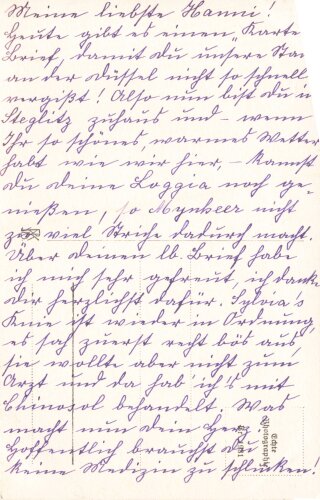 Meine liebste Hanni!
Heute gibt es einen "Karten
Brief, damit du unsere Sta
an der Düssel nicht so schnell
vergißt! Also nun bist du in
Steglitz zuhaus und - wenn
Ihr so schönes, warmes Wetter
habt wie wir hier, - kannst
du deine Loggia noch ge-
nießen, so Mynheer nicht
zu viel Striche dadurch macht.
Über deinen lb. Brief habe
ich mich sehr gefreut, ich danke
dir herzlichst dafür. Sylvia's
Knie ist wieder in Ordnung,
es sah zuerst recht bös aus,
sie wollte aber nicht zum
Arzt und da hab' ich's mit
Chinosol behandelt. Was
macht nun dein Herz?
Hoffentlich brauchst du
keine Medizin zu schlucken!
Echte
Photographie